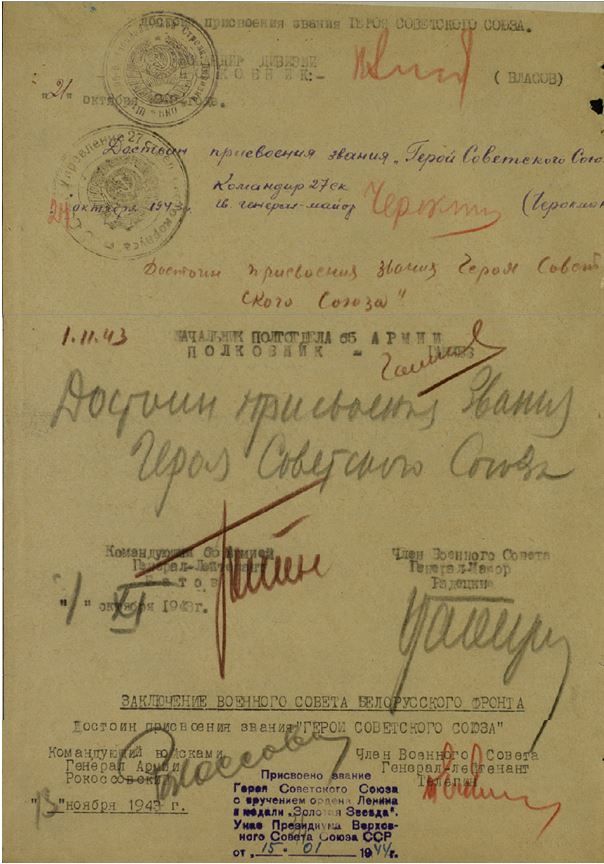 ДОСТОИН ПРИСВОЕНИЯ ЗВАНИЯ ГЕРОЯ СОВЕТСКОГО СОЮЗА.
ДИВИЗИИ
(ВЛАСОВ)
"21" октября
Достоин присвоения звания „Герой Советского Союз
Командир 27 ск
Гв. генерал-майор
24 октября 1943г.
Достоин присвоения звания Героя Совет
ского Союза"
1.11.43
НАЧАЛЬНИК ПОЛИТОТДЕЛА 65 АРМИИ
ПОЛКОВНИК -
Достоин присвоения Звания
Героя Советского Союза
Командующий 65 Армией
Генерал-Лейтенант
Батов
"1" XI октября 1943г.
Член Военного Совета
Генерал-Майор
Радецкий
ЗАКЛЮЧЕНИЕ ВОЕННОГО СОВЕТА БЕЛОРУССКОГО ФРОНТА
Достоин присвоения звания "ГЕРОЙ СОВЕТСКОГО СОЮЗА"
Командующий войсками
Генерал Армии
Рокоссовский
"13" ноября 1943 г.
Член Военного Совета
Генерал-лейтенант
Телегин
Присвоено звание
Героя Советского Союза
с вручением ордена Ленина
и медали „Золотая Звезда".
Указ Президиума Верхов-
ного Совета Союза ССР
от „15" 01 1944г.